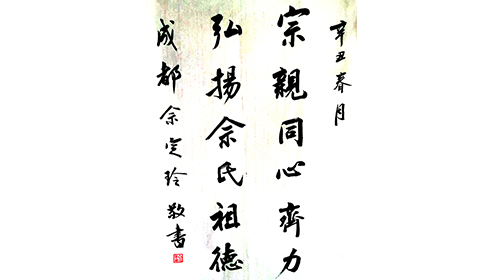 辛丑春月
宗親同心齊力
弘揚佘氏祖德
成都佘定玲敬書